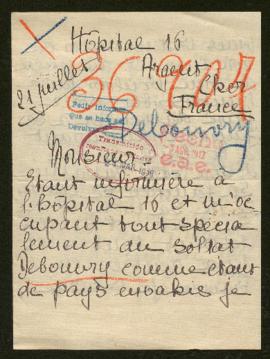 Hôpital 16
Argent
Cher
France
21 juillet
Debouvry
Monsieur
Etant infirmière à
l'Hôpital 16 et m'oc
cupant tout spécia
lement du soldat
Debouvry comme étant
de pays envahis je